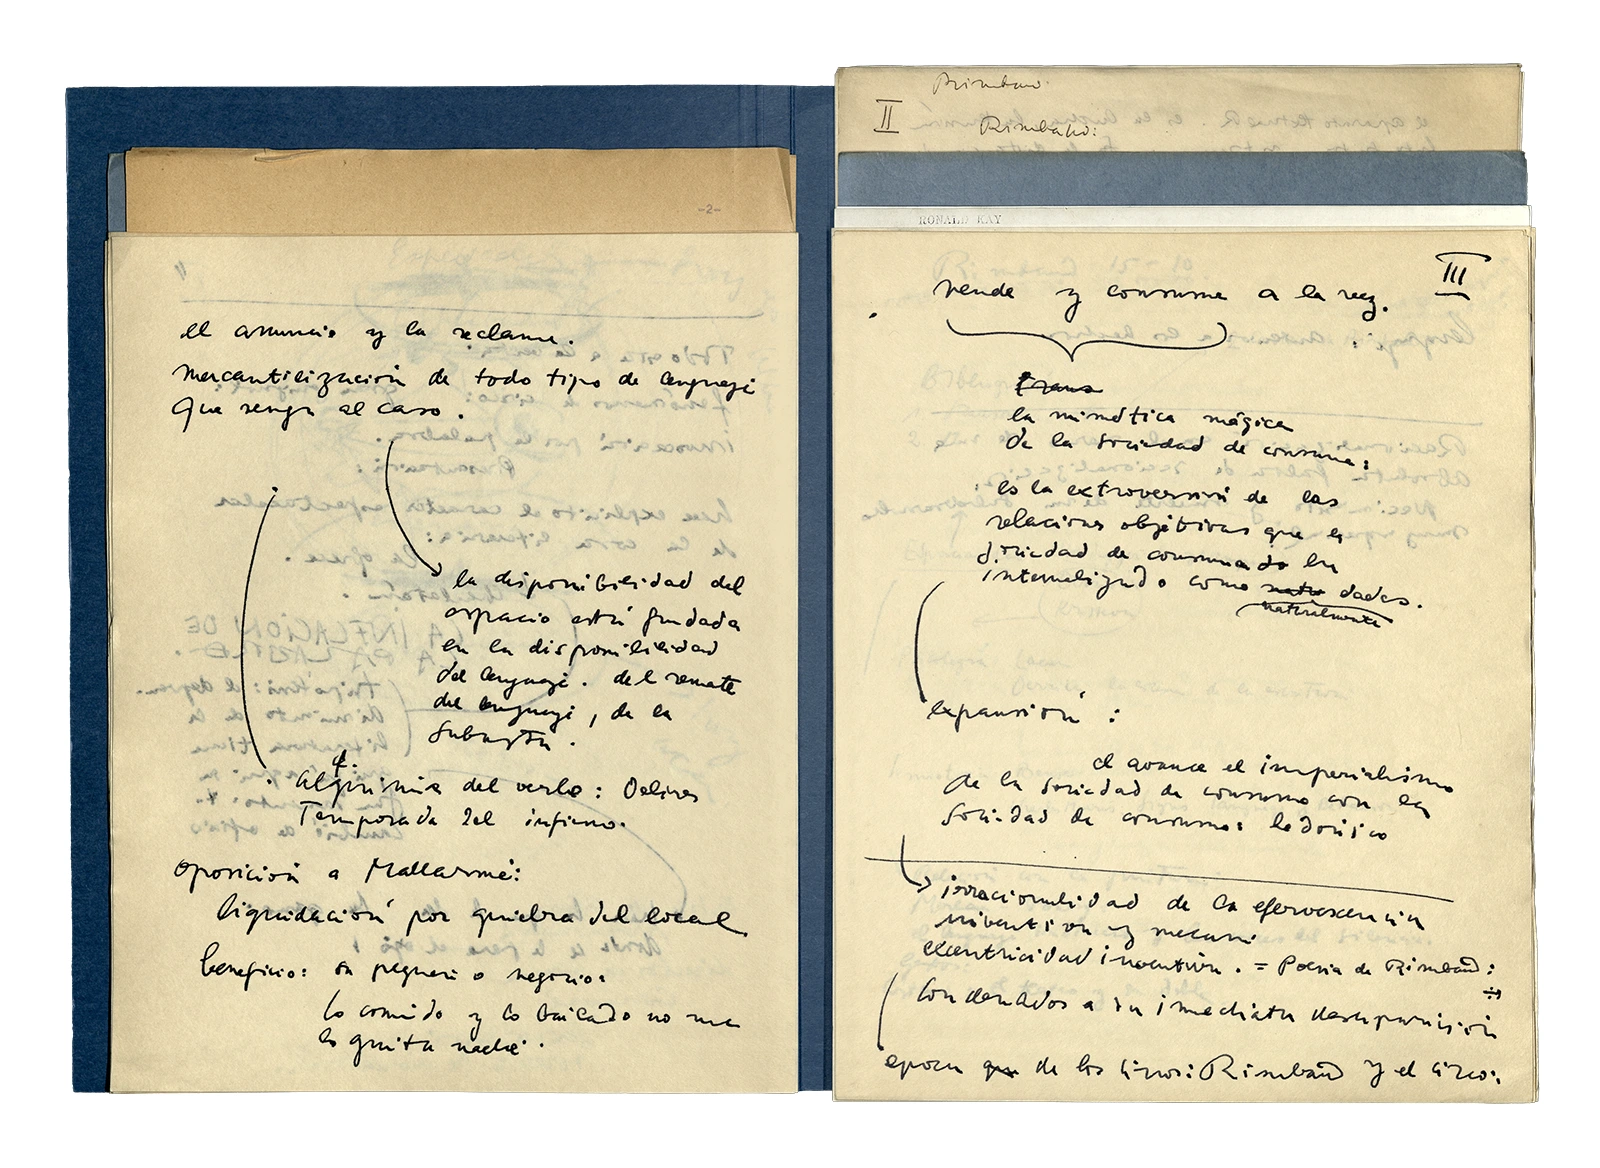 -2-
el anuncio y la reclame.
mercantilización de todo tipo de lenguaje
que venga al caso.
la disponibilidad del
espacio está fundada
en la disponibilidad
del lenguaje. del remate
del lenguaje, de la
subasta.
Alquimia del verbo: Delires
Temporada del infierno.
Oposición a Mallarmé:
liquidación por quiebra del local
beneficio: su pequeño negocio:
lo comido y lo bailado no me
lo quita nadie.
Rimbaud
II Rimbaud:
RONALD KAY
III
vende y consume a la vez.
la mimética mágica
de la sociedad de consumo:
es la extroversión de las
relaciones objetivas que la
sociedad de consumo ha
internalizado como dadas.
naturalmente
expansión:
el avance el imperialismo
de la sociedad de consumo con la
sociedad de consumo: lo
irracionalidad de la efervescencia
inventiva y
excentricidad = Poesía de Rimbaud:
condenados a su inmediata desaparición
época de los circos: Rimbaud y el circo: